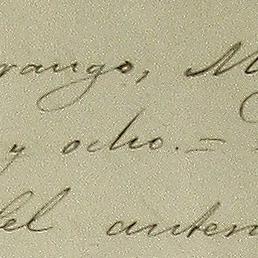 rango, M
y ocho.=
del anten